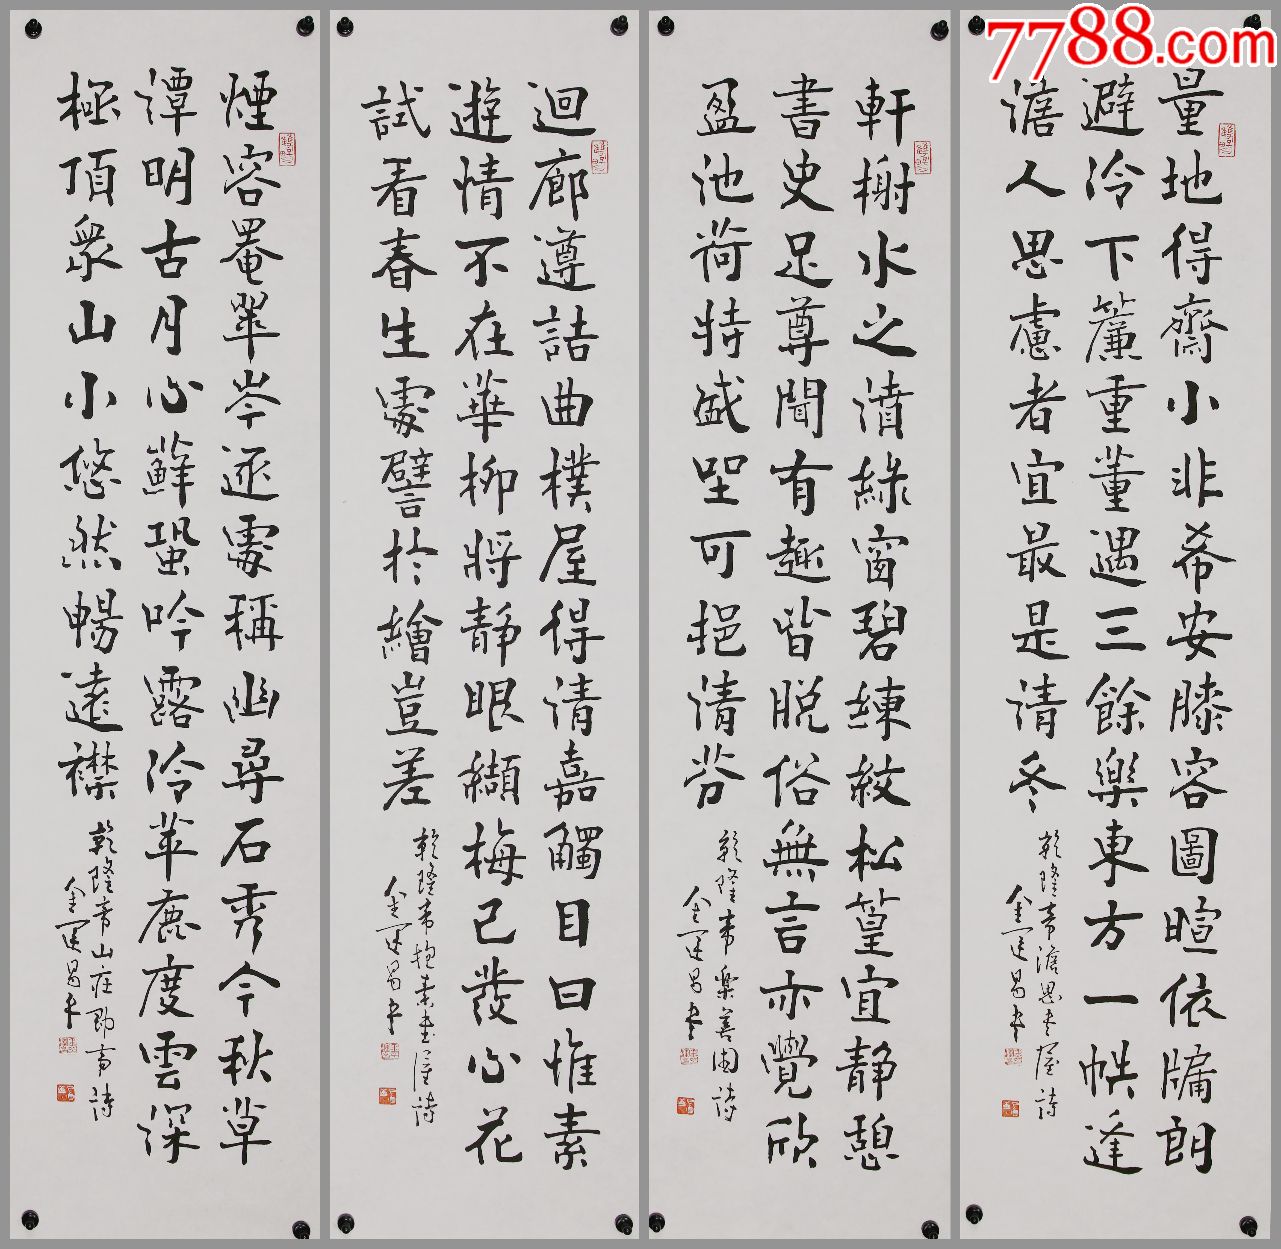 7788.com
量地得齋小非希安膝容圖暄依牖朗
避冷下簾重董遇三餘樂東方一帙逢
澹人思慮者宜最是清冬
乾隆帝澹思書屋詩
金運昌書
軒榭水之濆綠窗碧練紋松篁宜靜憩
書史足尊聞有趣皆脫俗無言亦覺欣
盈池荷特盛坐可挹清芬
乾隆帝樂善園詩
金運昌書
迴廊遵詰曲樸屋得清嘉觸目曰惟素
遊情不在華柳將靜眼纈梅已發心花
試看春生處譬於繪豈差
乾隆帝抱素書屋詩
金運昌書
煙容罨翠岑逐處稱幽尋石秀今秋草
潭明古月心蘚蛩吟露冷苹鹿度雲深
極頂眾山小悠然暢遠襟
乾隆帝山莊即事詩
金運昌書